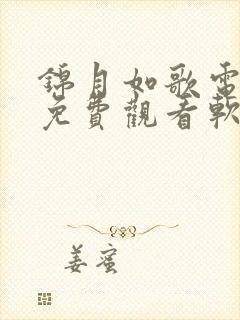 錦月如歌電
免費觀看軟
姜蜜